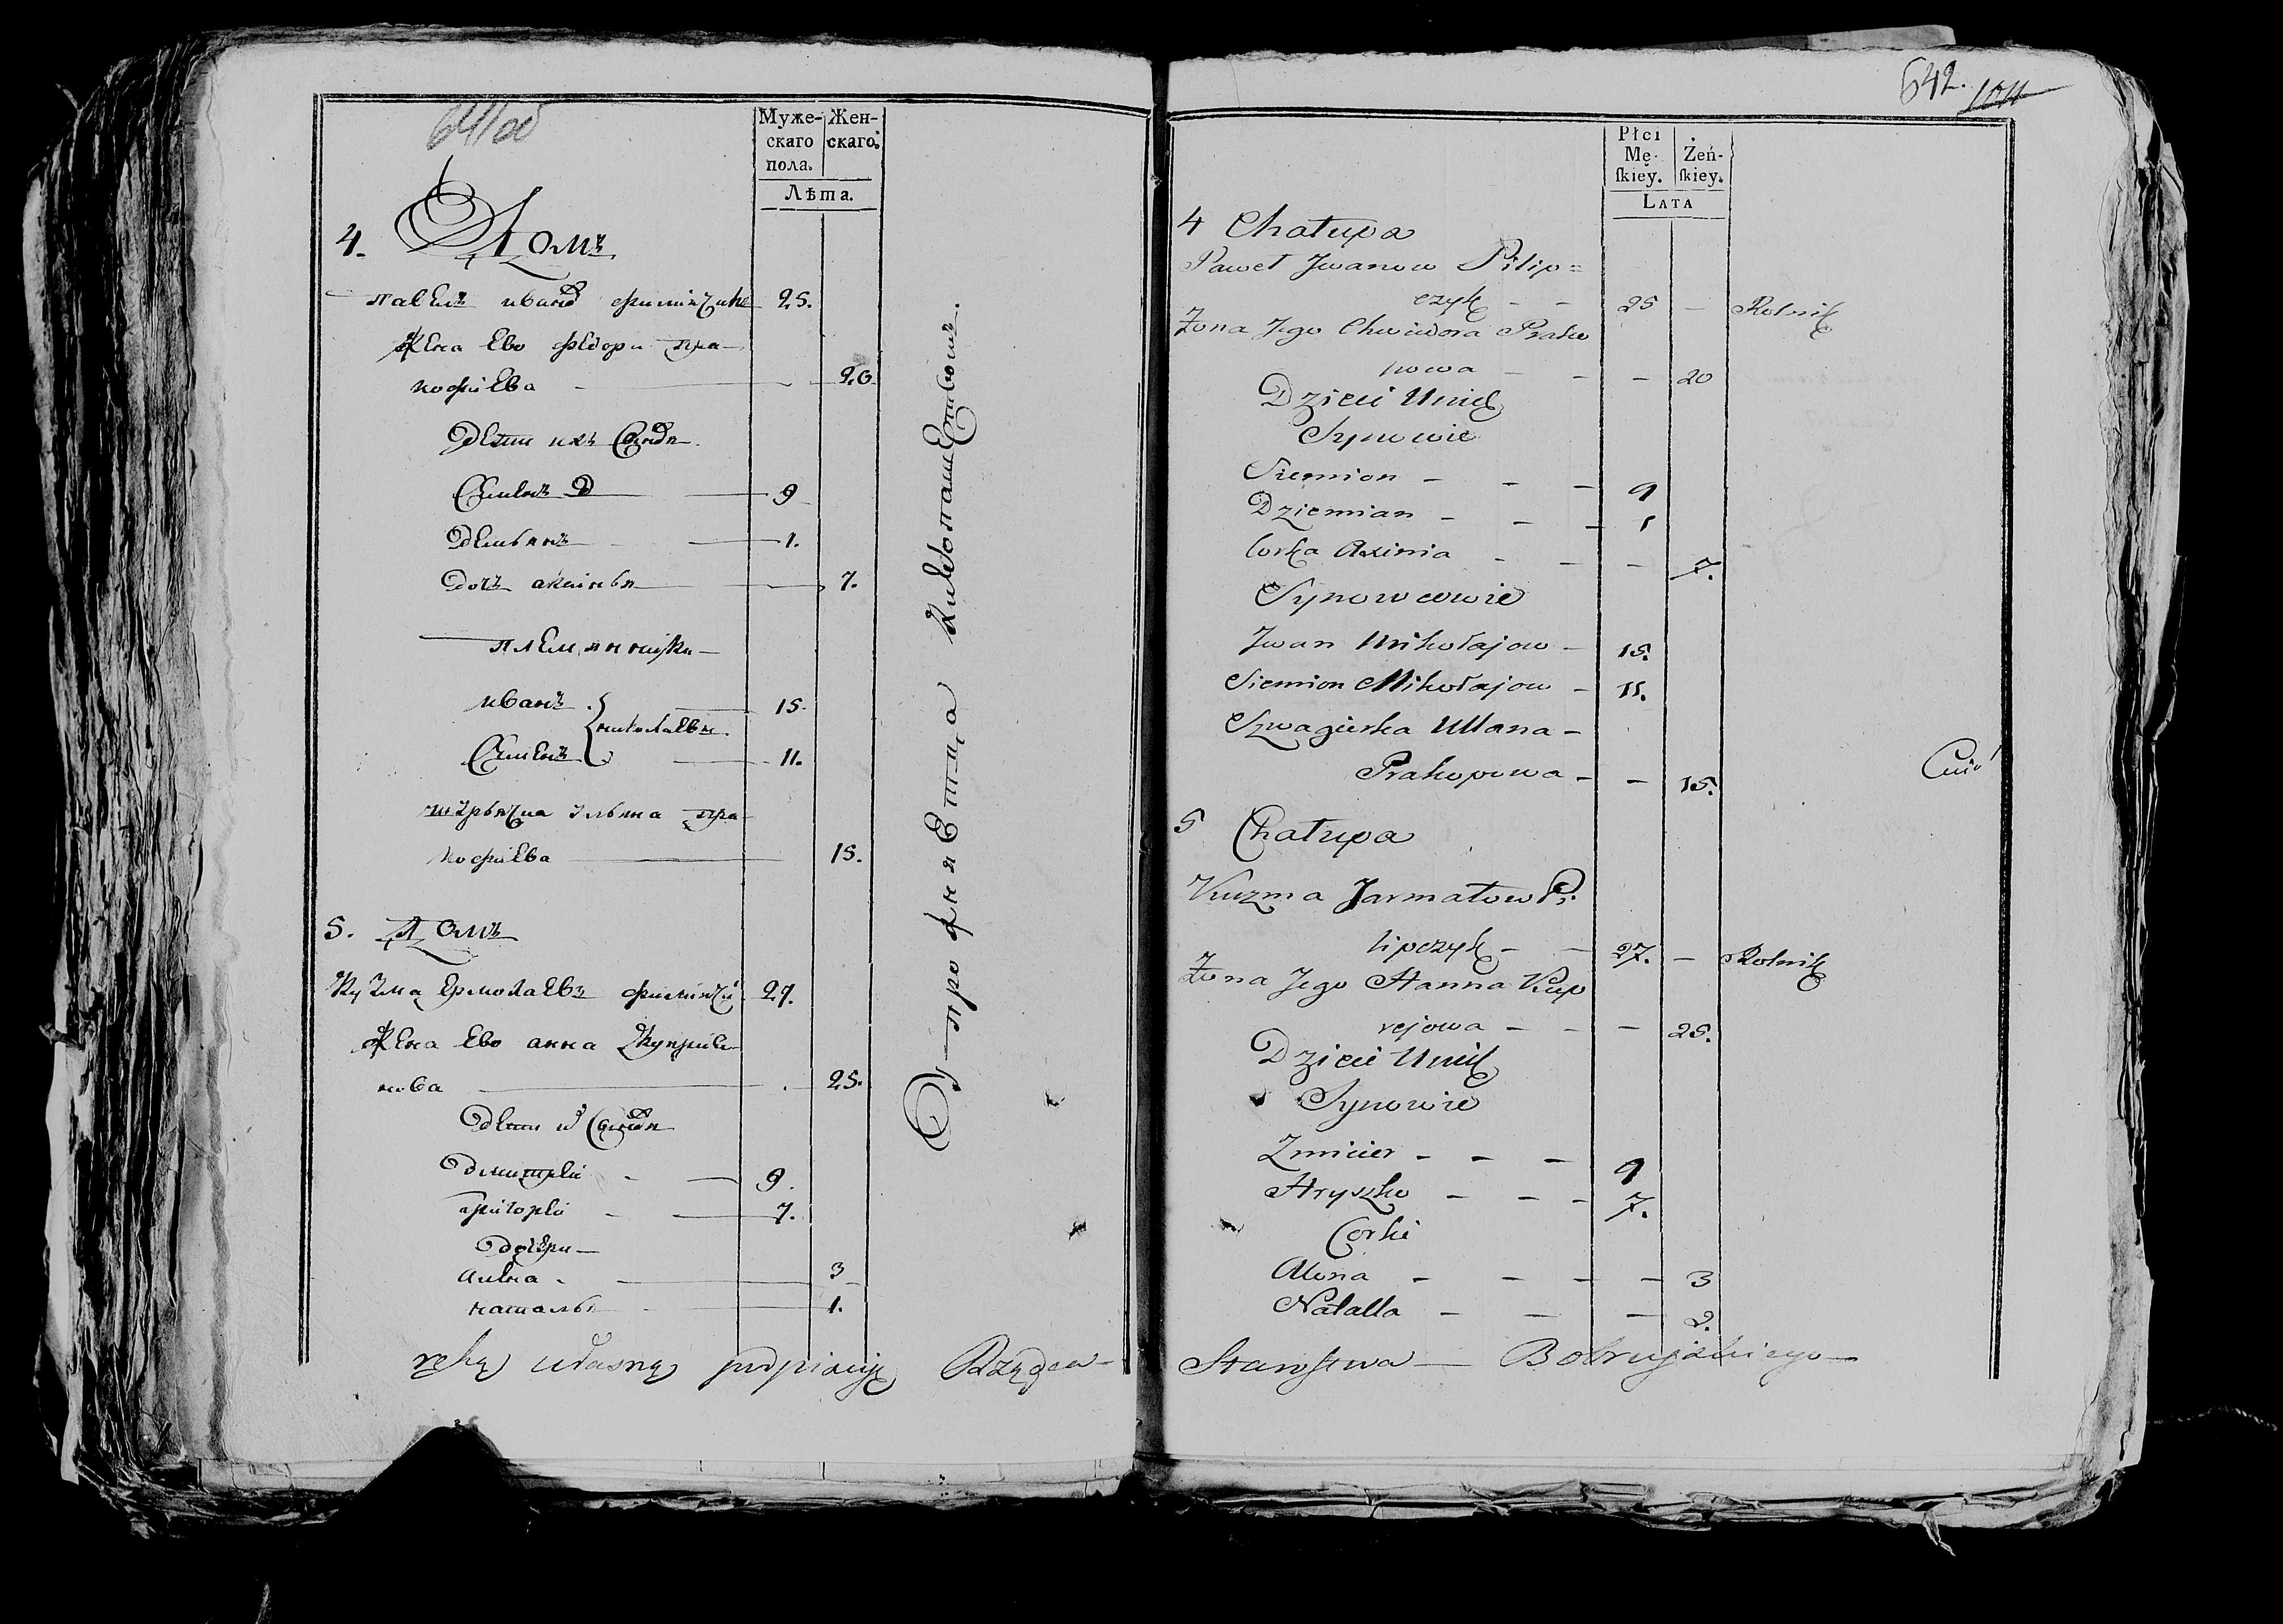 Муже-
скаго
пола.
Жен-
скаго.
Лѣта.
4. Домъ
павелъ иванов филипчикъ 25.
Жена Ево федора пра-
кофиева 20
Дети ихъ Сыновя
Семенъ 9
Демьянъ 1.
Дочь аксинья 7.
племянники
иванъ 15.
николаевы
Семенъ 11.
ульяна пра
кофиева 15.
5. Домъ
Кузма Ермолаевъ филипчи 27.
Жена Ево анна Куприя
нова 25.
Дети их Сыновя
Дмитрей 9.
григорей 7.
Дочери
алена 3
наталья 1.
рękę własną podpisuję Rządca
642.
Płci
Mę-
ſkiey.
Żeń-
ſkiey.
LATA
4 Chałupa
Paweł Jwanow Pilip=
czyk - - 25 - Rolnik
Żona Jego Chwiedora Prako
powa - - - 20
Dzieci Unich
Synowie
Siemion - - - 9
Dziemian - - - 1
Corka Axinia - - - 7.
Synowcowie
Jwan Mikołajow - 15.
Siemion Mikołajow - 11.
Szwagierka Ullana -
Prakopowa - - 15.
5 Chałupa
Kuzma Jarmałow Pi
lipczyk - - 27. - Rolnik
Żona Jego Hanna Kup
rejowa - - - 25.
Dzieci Unich
Synowie
Zmicier - - - 9
Hryszko - - - 7.
Corki
Alona - - - - 3
Natalla - - - 2.
Starostwa Bobruyskiego